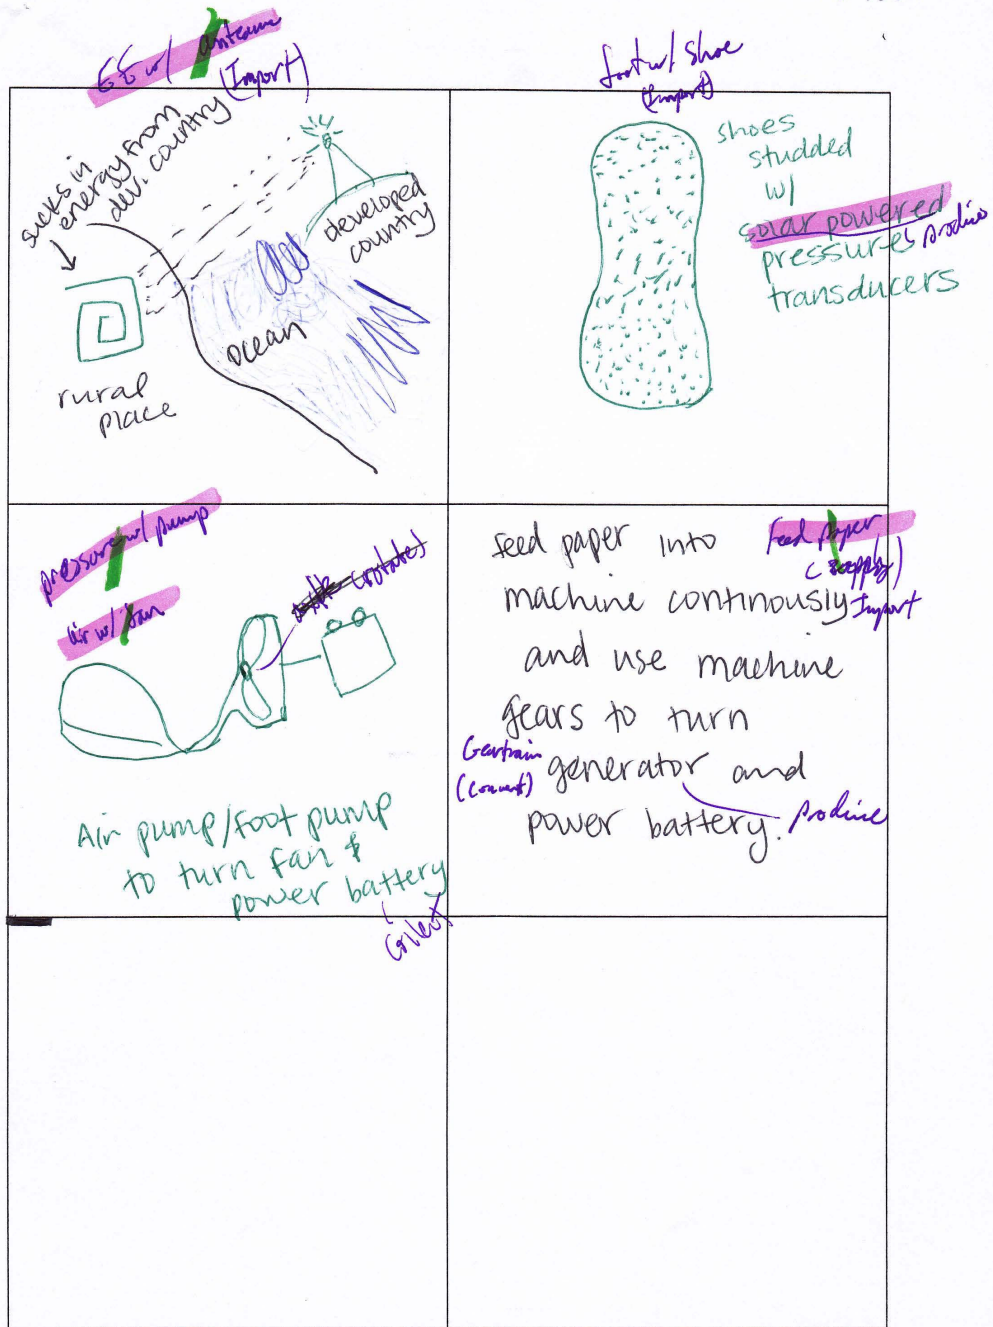 EE w/ antenna
(Import)
sucks in
energy from
dev. country
developed
country
ocean
rural
place
foot w/ shoe
(Import)
shoes
studded
w/
solar powered
produce
pressure
transducers
pressure w/ pump
air w/ fan
(rotates)
Air pump/foot pump
to turn fan &
power battery
Collect
Feed paper
(supply)
Import
feed paper into
machine continously
and use machine
gears to turn
generator and
power battery.
Geartrain
(convert)
Produce